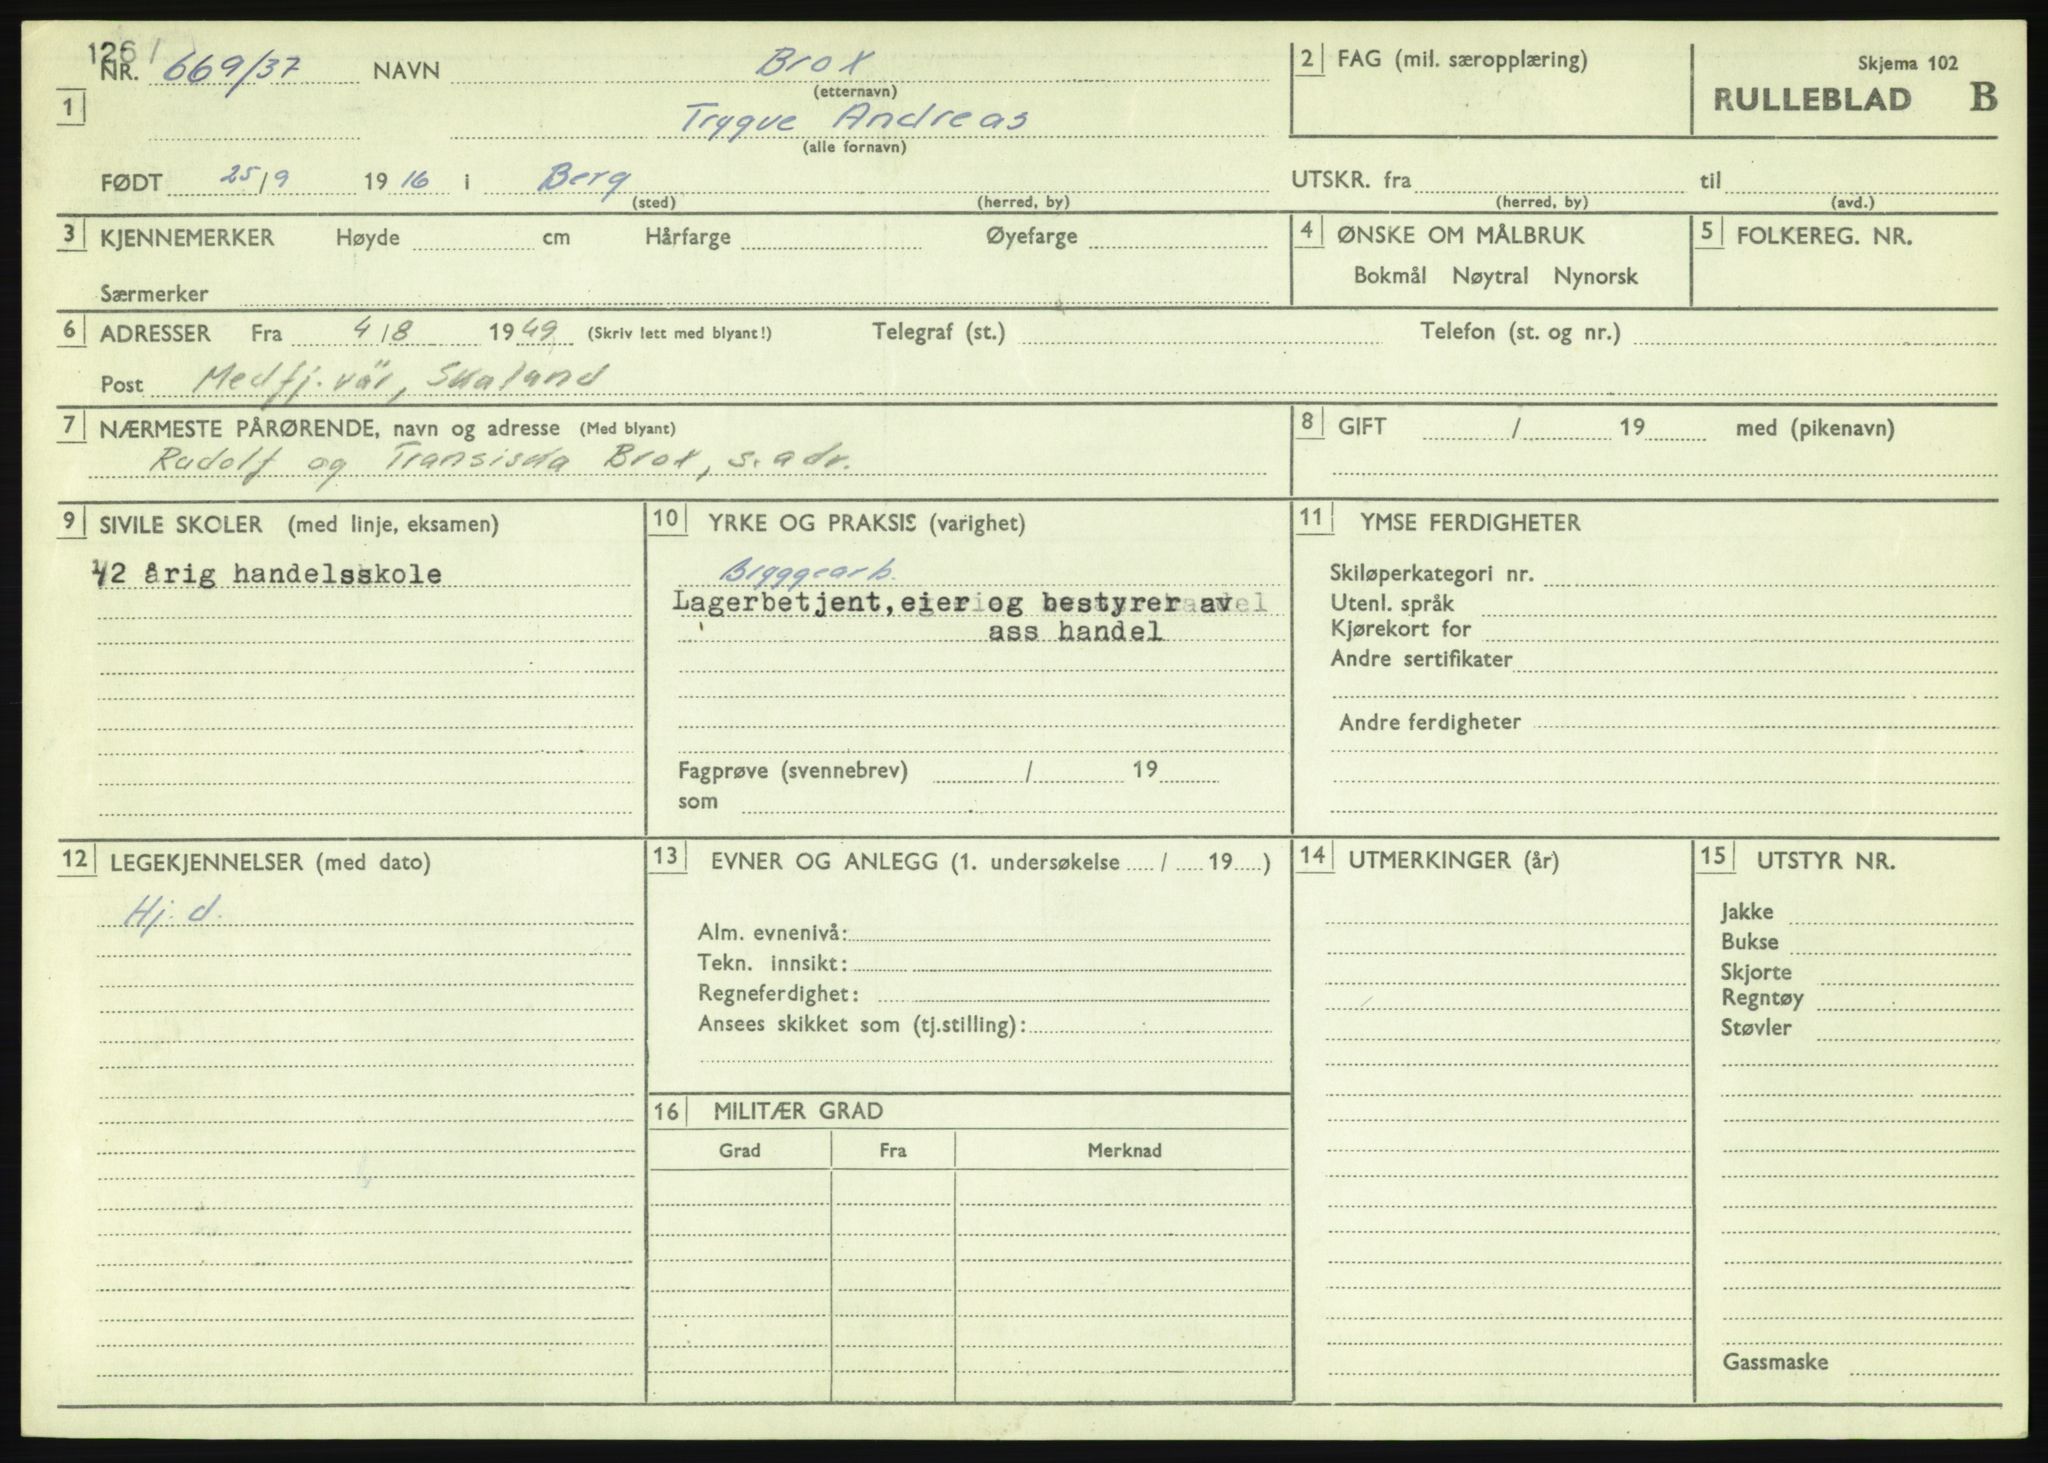 1261
NR. 669/37 NAVN Brox
(etternavn)
1
Trygve Andreas
(alle fornavn)
FØDT 25/9 1916 i Berg
(sted) (herred, by)
2 FAG (mil. særopplæring)
Skjema 102
RULLEBLAD B
UTSKR. fra til
(herred, by) (avd.)
3 KJENNEMERKER Høyde cm Hårfarge Øyefarge
Særmerker
4 ØNSKE OM MÅLBRUK
Bokmål Nøytral Nynorsk
5 FOLKEREG. NR.
6 ADRESSER Fra 4/8 1949 (Skriv lett med blyant!) Telegraf (st.) Telefon (st. og nr.)
Post Medfj.vär, Skaland
7 NÆRMESTE PÅRØRENDE, navn og adresse (Med blyant)
Rudolf og Transiska Brox, s. adr.
8 GIFT / 19 med (pikenavn)
9 SIVILE SKOLER (med linje, eksamen)
1/2 årig handelsskole
10 YRKE OG PRAKSIS (varighet)
Bryggearb.
Lagerbetjent, eier og bestyrer av
ass handel
Fagprøve (svennebrev) / 19
som
11 YMSE FERDIGHETER
Skiløperkategori nr.
Utenl. språk
Kjørekort for
Andre sertifikater
Andre ferdigheter
12 LEGEKJENNELSER (med dato)
Hj. d.
13 EVNER OG ANLEGG (1. undersøkelse / 19 )
Alm. evnenivå:
Tekn. innsikt:
Regneferdighet:
Ansees skikket som (tj.stilling):
16 MILITÆR GRAD
Grad Fra Merknad
14 UTMERKINGER (år)
15 UTSTYR NR.
Jakke
Bukse
Skjorte
Regntøy
Støvler
Gassmaske